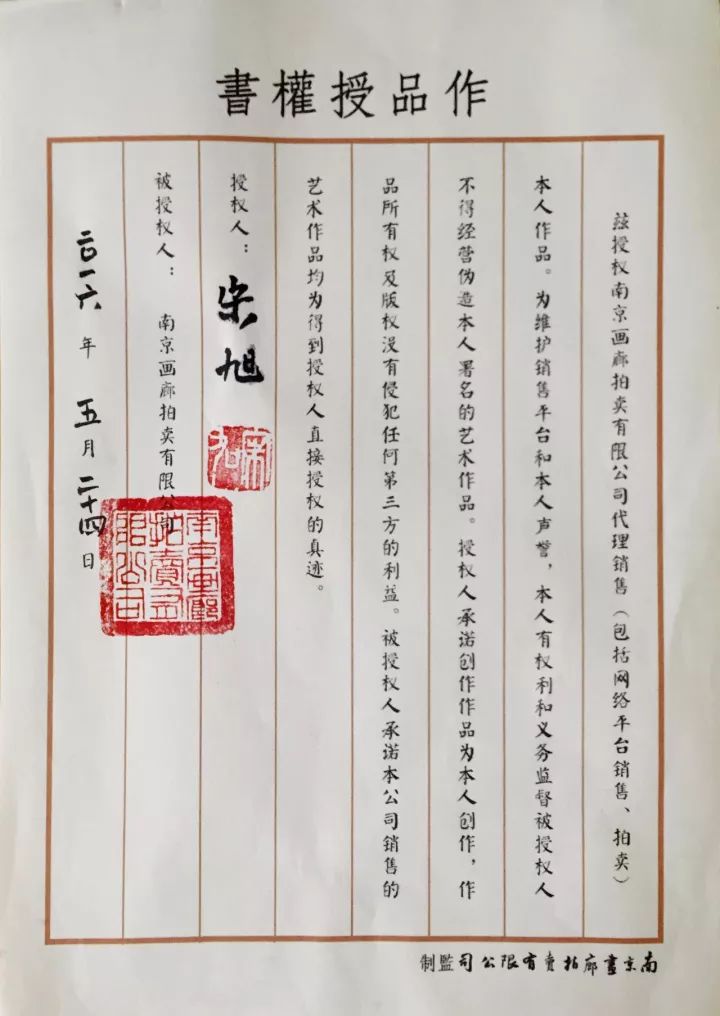 作品授權書
茲授权南京画廊拍卖有限公司代理销售（包括网络平台销售、拍卖）
本人作品。为维护销售平台和本人声誉，本人有权利和义务监督被授权人
不得经营伪造本人署名的艺术作品。授权人承诺创作作品为本人创作，作
品所有权及版权没有侵犯任何第三方的利益。被授权人承诺本公司销售的
艺术作品均为得到授权人直接授权的真迹。
授权人：宋旭
被授权人：南京画廊拍卖有限公司
二〇一六年五月二十四日
南京畫廊拍賣有限公司
南京畫廊拍賣有限公司監制